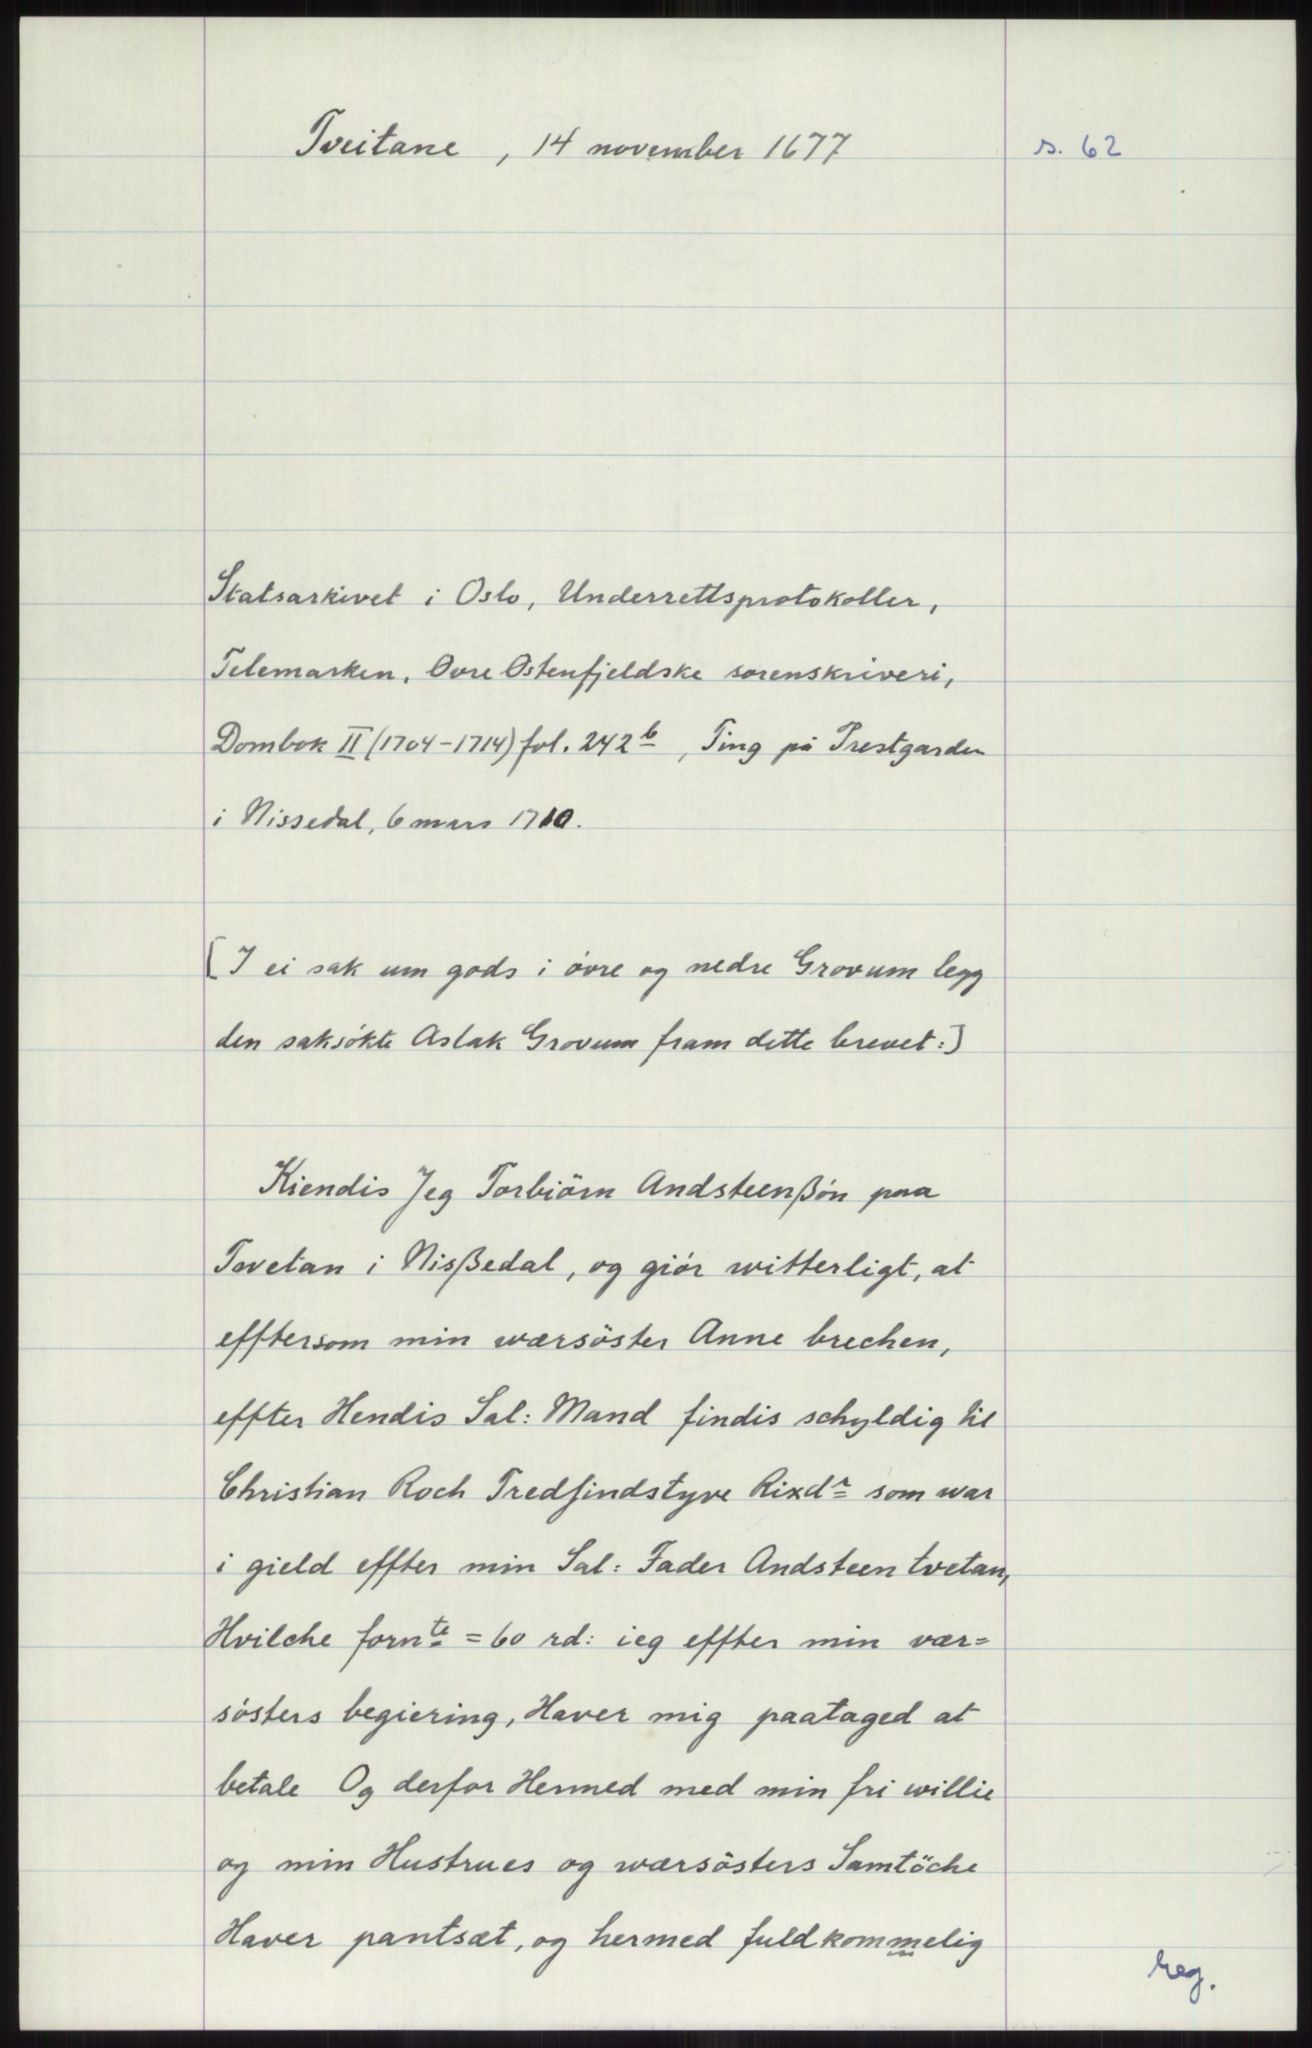 Tveitane , 14 november 1677
s. 62
Statsarkivet i Oslo, Underrettsprotokoller,
Telemarken, Øvre Østenfjeldske sorenskriveri,
Dombok II (1704-1714) fol. 242 b , Ting på Prestgarden
i Nissedal, 6 mars 1710.
[I ei sak um gods i øvre og nedre Grovum legg
den saksökte Aslak Grovum fram dette brevet:]
Kiendis Jeg Torbiörn Andsteenßön paa
Tvetan i Nisßedal, og giör witterligt, at
efftersom min wærsöster Anne brechen,
effter Hendis Sal: Mand findis schyldig til
Christian Roch Tredsindstyve Rixdr som war
i gield effter min Sal: Fader Andsteen tvetan,
Hvilche fornte = 60 rd: ieg effter min vær=
sösters begiering, Haver mig paataged at
betale Og derfor Hermed med min fri willie
og min Hustrues og wærsösters Samtöche
Haver pantsæt, og hermed fuldkommelig
reg.